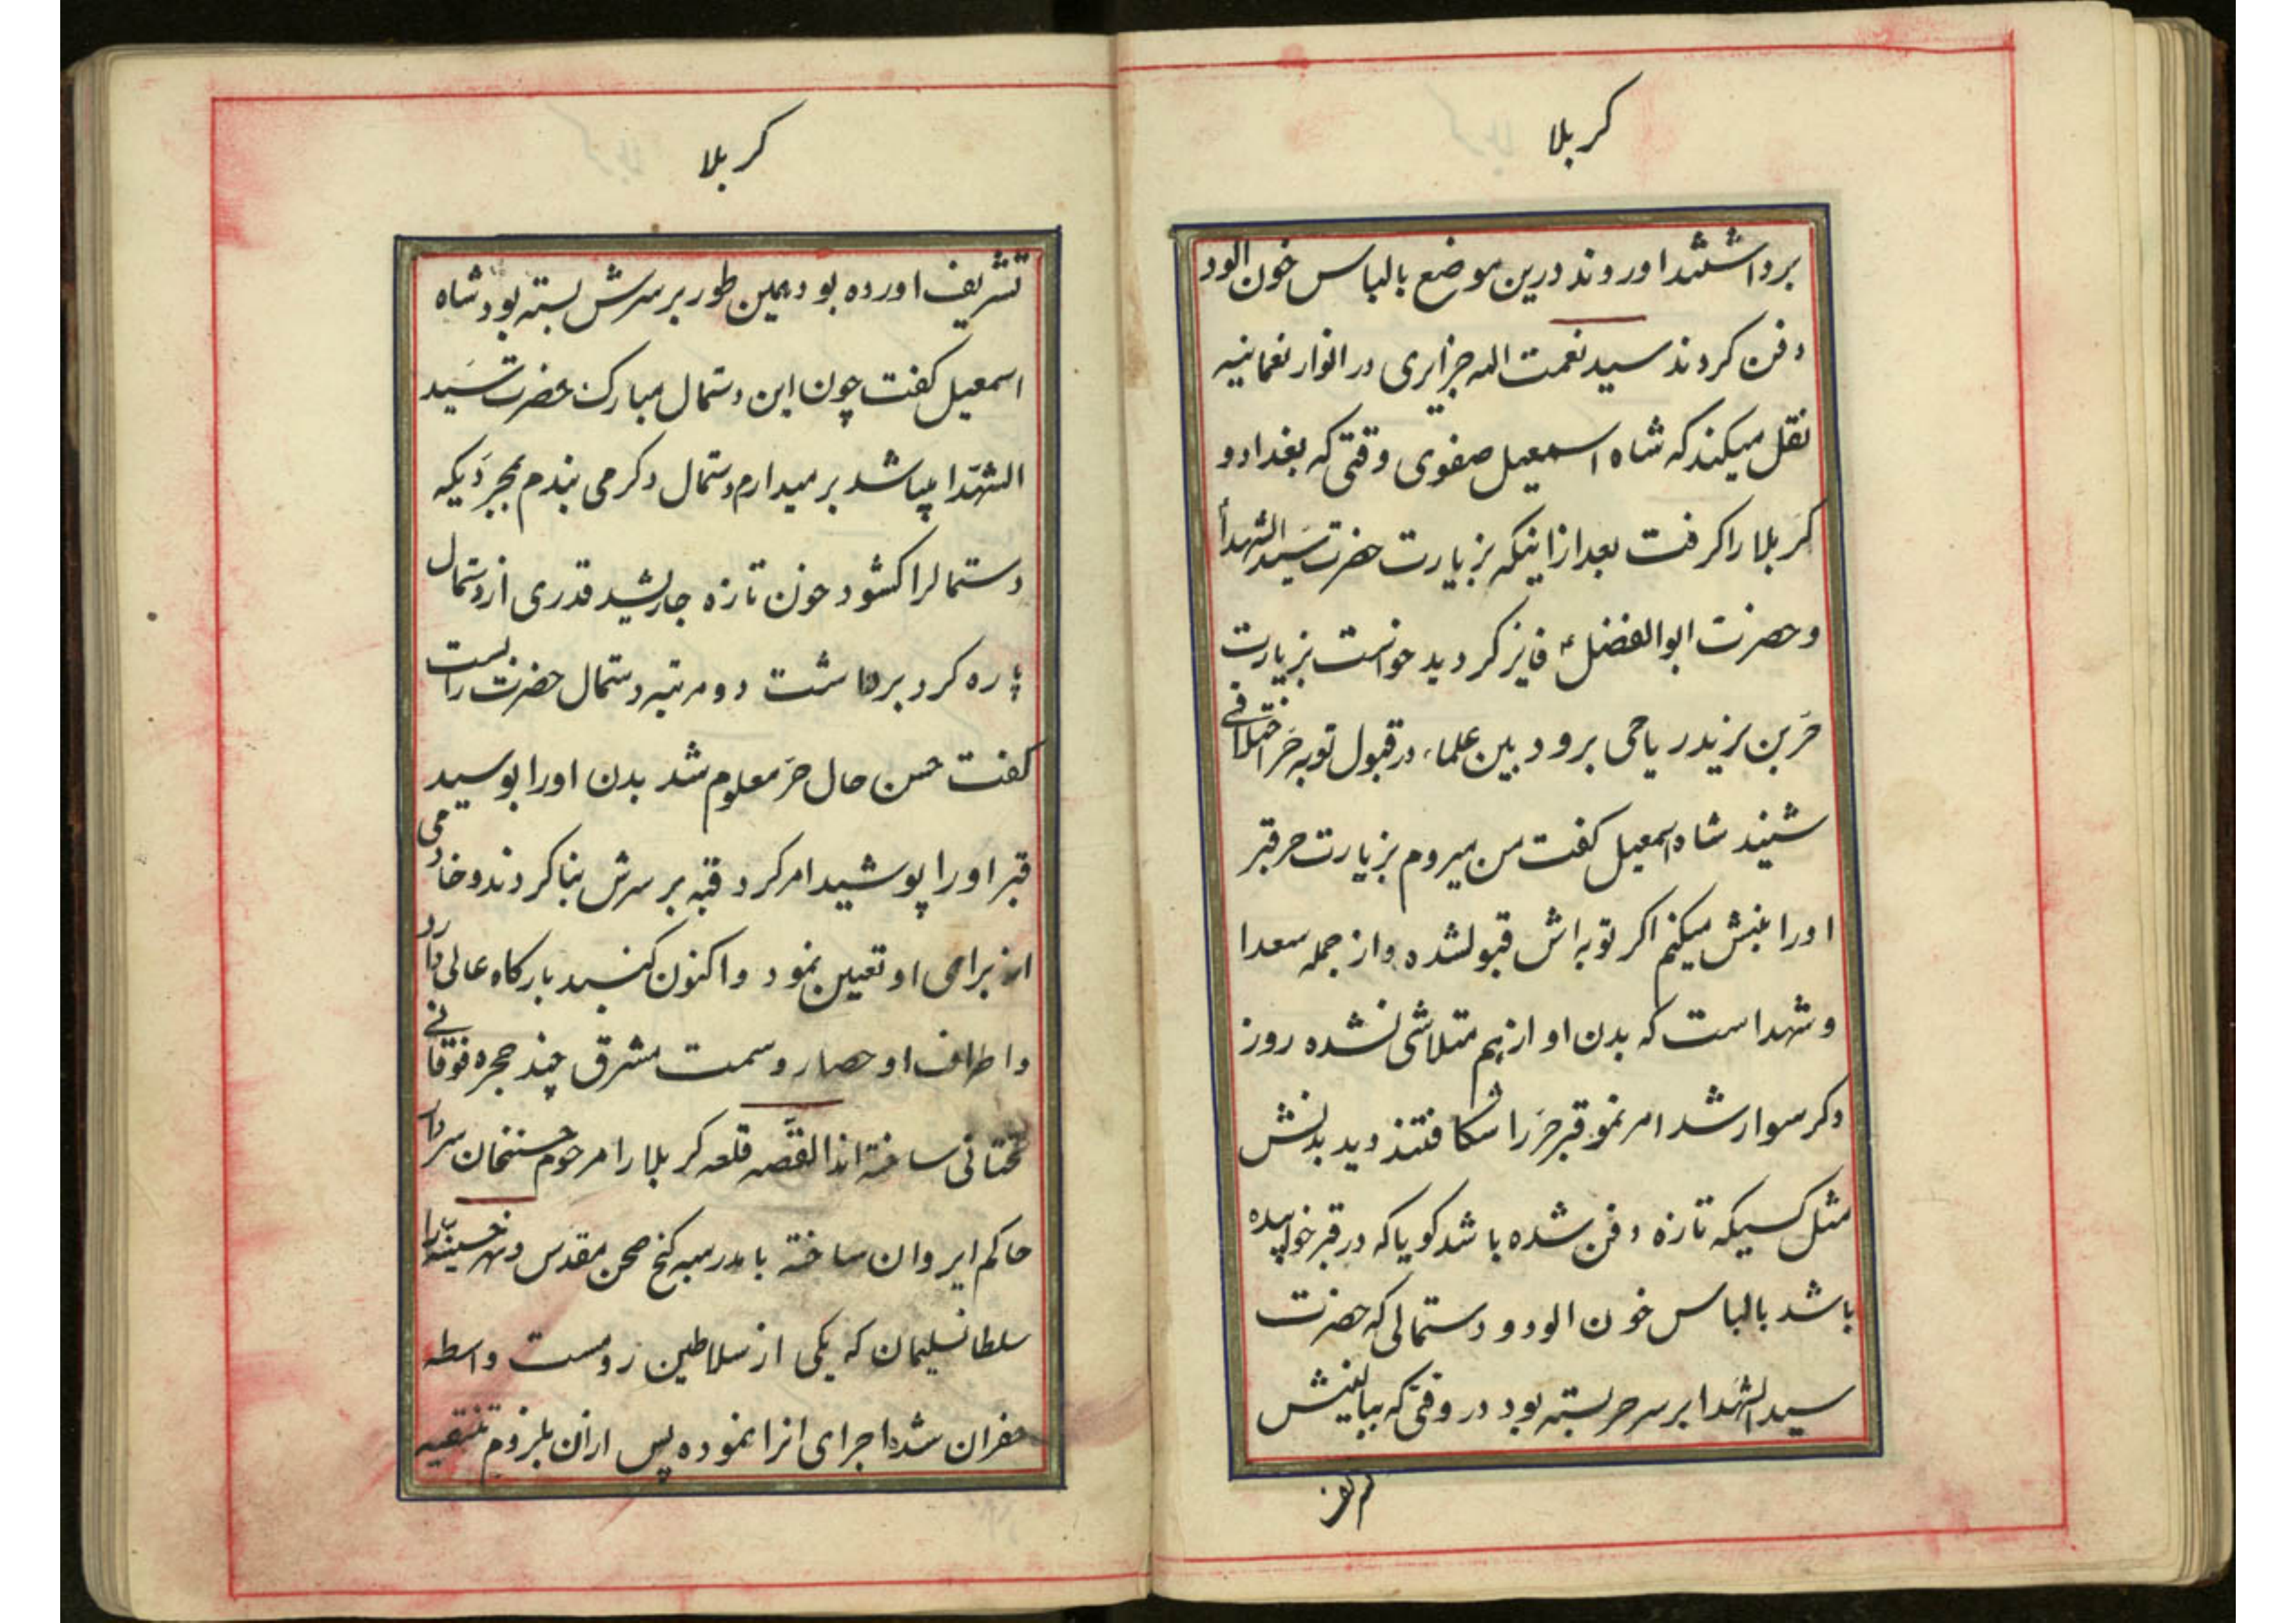 کربلا
برداشتند اوردند درین موضع بالباس خون الود
دفن کردند سید نعمت الله جزایری در انوار نعمانیه
نقل میکند که شاه اسمعیل صفوی وقتی که بغداد و
کربلا را کرفت بعد از اینکه بزیارت حضرت سید الشهدا
و حضرت ابوالفضل ع فایز کردید خواست بزیارت
حر بن یزید ریاحی برود بین علماء در قبول توبه حر اختلافی
شنید شاه اسمعیل کفت من میروم بزیارت حر قبر
اورا نبش میکنم اکر توبه اش قبولشده و از جمله سعدا
و شهداست که بدن او از هم متلاشی نشده روز
دکر سوار شد امر نمود قبر حر را شکافتند دید بدنش
مثل کسیکه تازه دفن شده باشد کویا که در قبر خوابیده
باشد بالباس خون الود و دستمالی که حضرت
سید الشهدا بر سر حر بسته بود در وقتی که ببالینش
کربلا
تشریف اورده بود همین طور بر سرش بسته بود شاه
اسمعیل کفت چون این دستمال مبارک حضرت سید
الشهدا میباشد بر میدارم دستمال دکر می بندم بمجردیکه
دستمالرا کشود خون تازه جاریشد قدری از دستمال
پاره کرد برداشت دو مرتبه دستمال حضرت را بست
کفت حسن حال حر معلوم شد بدن اورا بوسید
قبر اورا پوشید امر کرد قبه بر سرش بنا کردند و خادمی
از برای او تعیین نمود و اکنون کنبد بارکاه عالی دارد
و اطراف او حصار و سمت مشرق چند حجره فوقانی
تحتانی ساخته اند القصه قلعه کربلا را مرحوم حسنخان سردار
حاکم ایروان ساخته با مدرسه کنج صحن مقدس و نهر حسینیه را
سلطانسلیمان که یکی از سلاطین رومست واسطه
حفران شده اجرای انرا نموده پس ازان بلزوم تنقیه